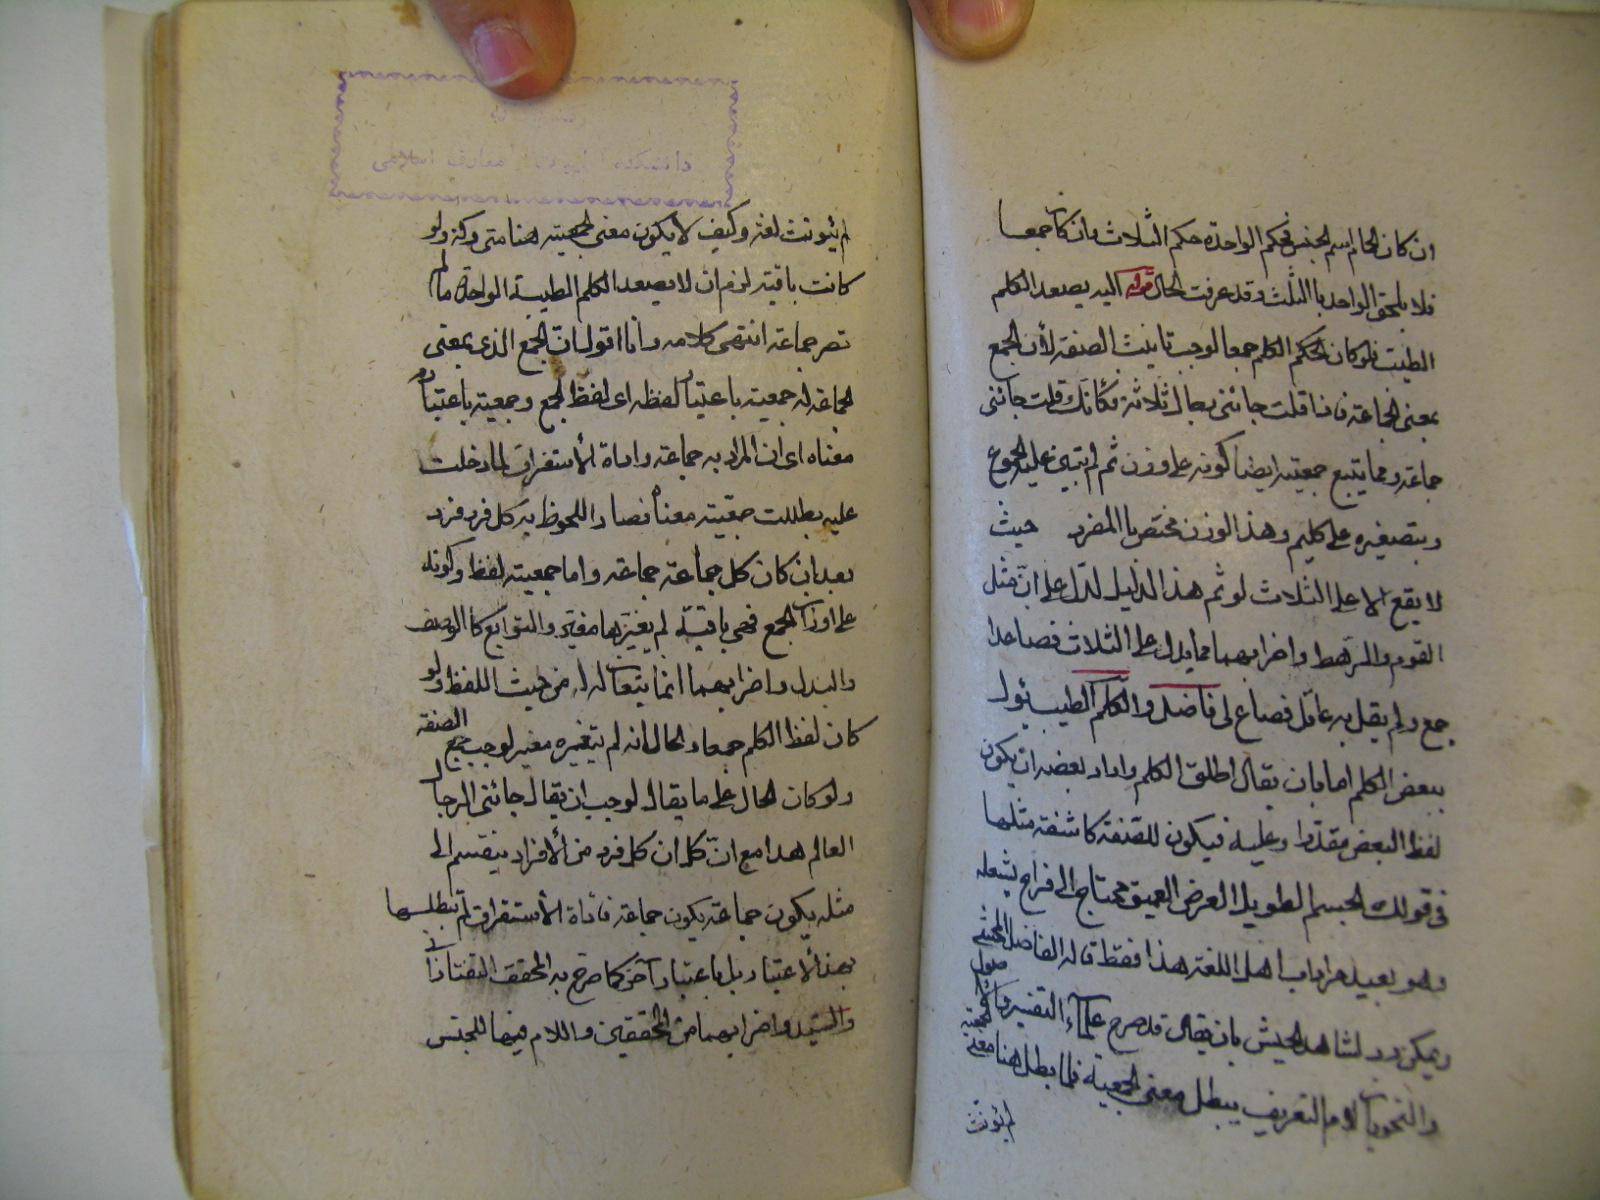 ان كان الحال اسم الجنس فحكم الواحدة حكم الثلاث وان كان جمعا
فلا يلحق الواحد با الثلث وقد عرفت الحال قوله اليه يصعد الكلم
الطيب فلو كان الحكم الكلم جمعا لوجب تانيث الصفة لأن الجمع
بمعنى الجماعة فاذا قلت جائنى رجال ثلاثة فكأنك قلت جائتنى
جماعة ومما يتبع جمعيته ايضا كونه على وزن ثم لم عليه الجموع
وبتصغيره على كليم وهذا الوزن مختص با المفرد حيث
لا يقع الا على الثلاث لو تم هذا الدليل لدل على ان مثل
القوم والرهط واضرابهما مما يدل على الثلاث فصاعدا
جمع ولم يقل به عاقل فضلا عن فاضل والكلم الطيب يئول
ببعض الكلم اما بان يقال اطلق الكلم واراد بعضه او يكون
لفظ البعض مقدرا وعليه فيكون للصفة كاشفة مثلها
فى قولك الجسم الطويل العريض العميق محتاج الى فراغ يشغله
وهو بعيد اهل اللغة هذا فقط قاله الفاضل المحشى
ويمكن بان يقال قد صرح علماء التفسير والاصول
والنحو بان لام التعريف يبطل معنى الجمعية فلما بطل هنا معنى الجمعية
لم يؤنث
لم يئونث لفة وكيف لا يكون معنى الجمعيته هنا متروكة ولو
كانت باقية لزم ان لا يصعد الكلم الطيبة الواحدة ما لم
تصر جماعة انتهى كلامه وانا اقول ان الجمع الذى بمعنى
الجماعة له جمعيته باعتبار لفظه اى لفظ الجمع وجمعيته باعتبار
معناه اى ان المراد به جماعة واداة الأستغراق لما دخلت
عليه بطلت جمعيته معناه فصار الملحوظ به كل فرد فرد
بعد ان كان كل جماعة جماعة واما جمعيته لفظ وكونه
على اوزان الجمع فهى باقية لم يغيرها مغير والتوابع كا الوصف
والبدل واضرابهما انما يتبعان له من حيث اللفظ ولو
كان لفظ الكلم جمعا والحال انه لم يتغيره مغير لوجب جمع الصفة
ولو كان الحال على ما يقال لوجب ان يقال جائنى الرجال
العالم هذا مع ان كل فرد من الأفراد ينقسم الى
مثله يكون جماعة يكون جماعة فأداة الأستغراق لم تبطلها
بهذ الأعتبار بل باعتبار آخر كما صرح به المحقق التفتازانى
والسيد واضرابهما من المحققين واللام فيها للجنس